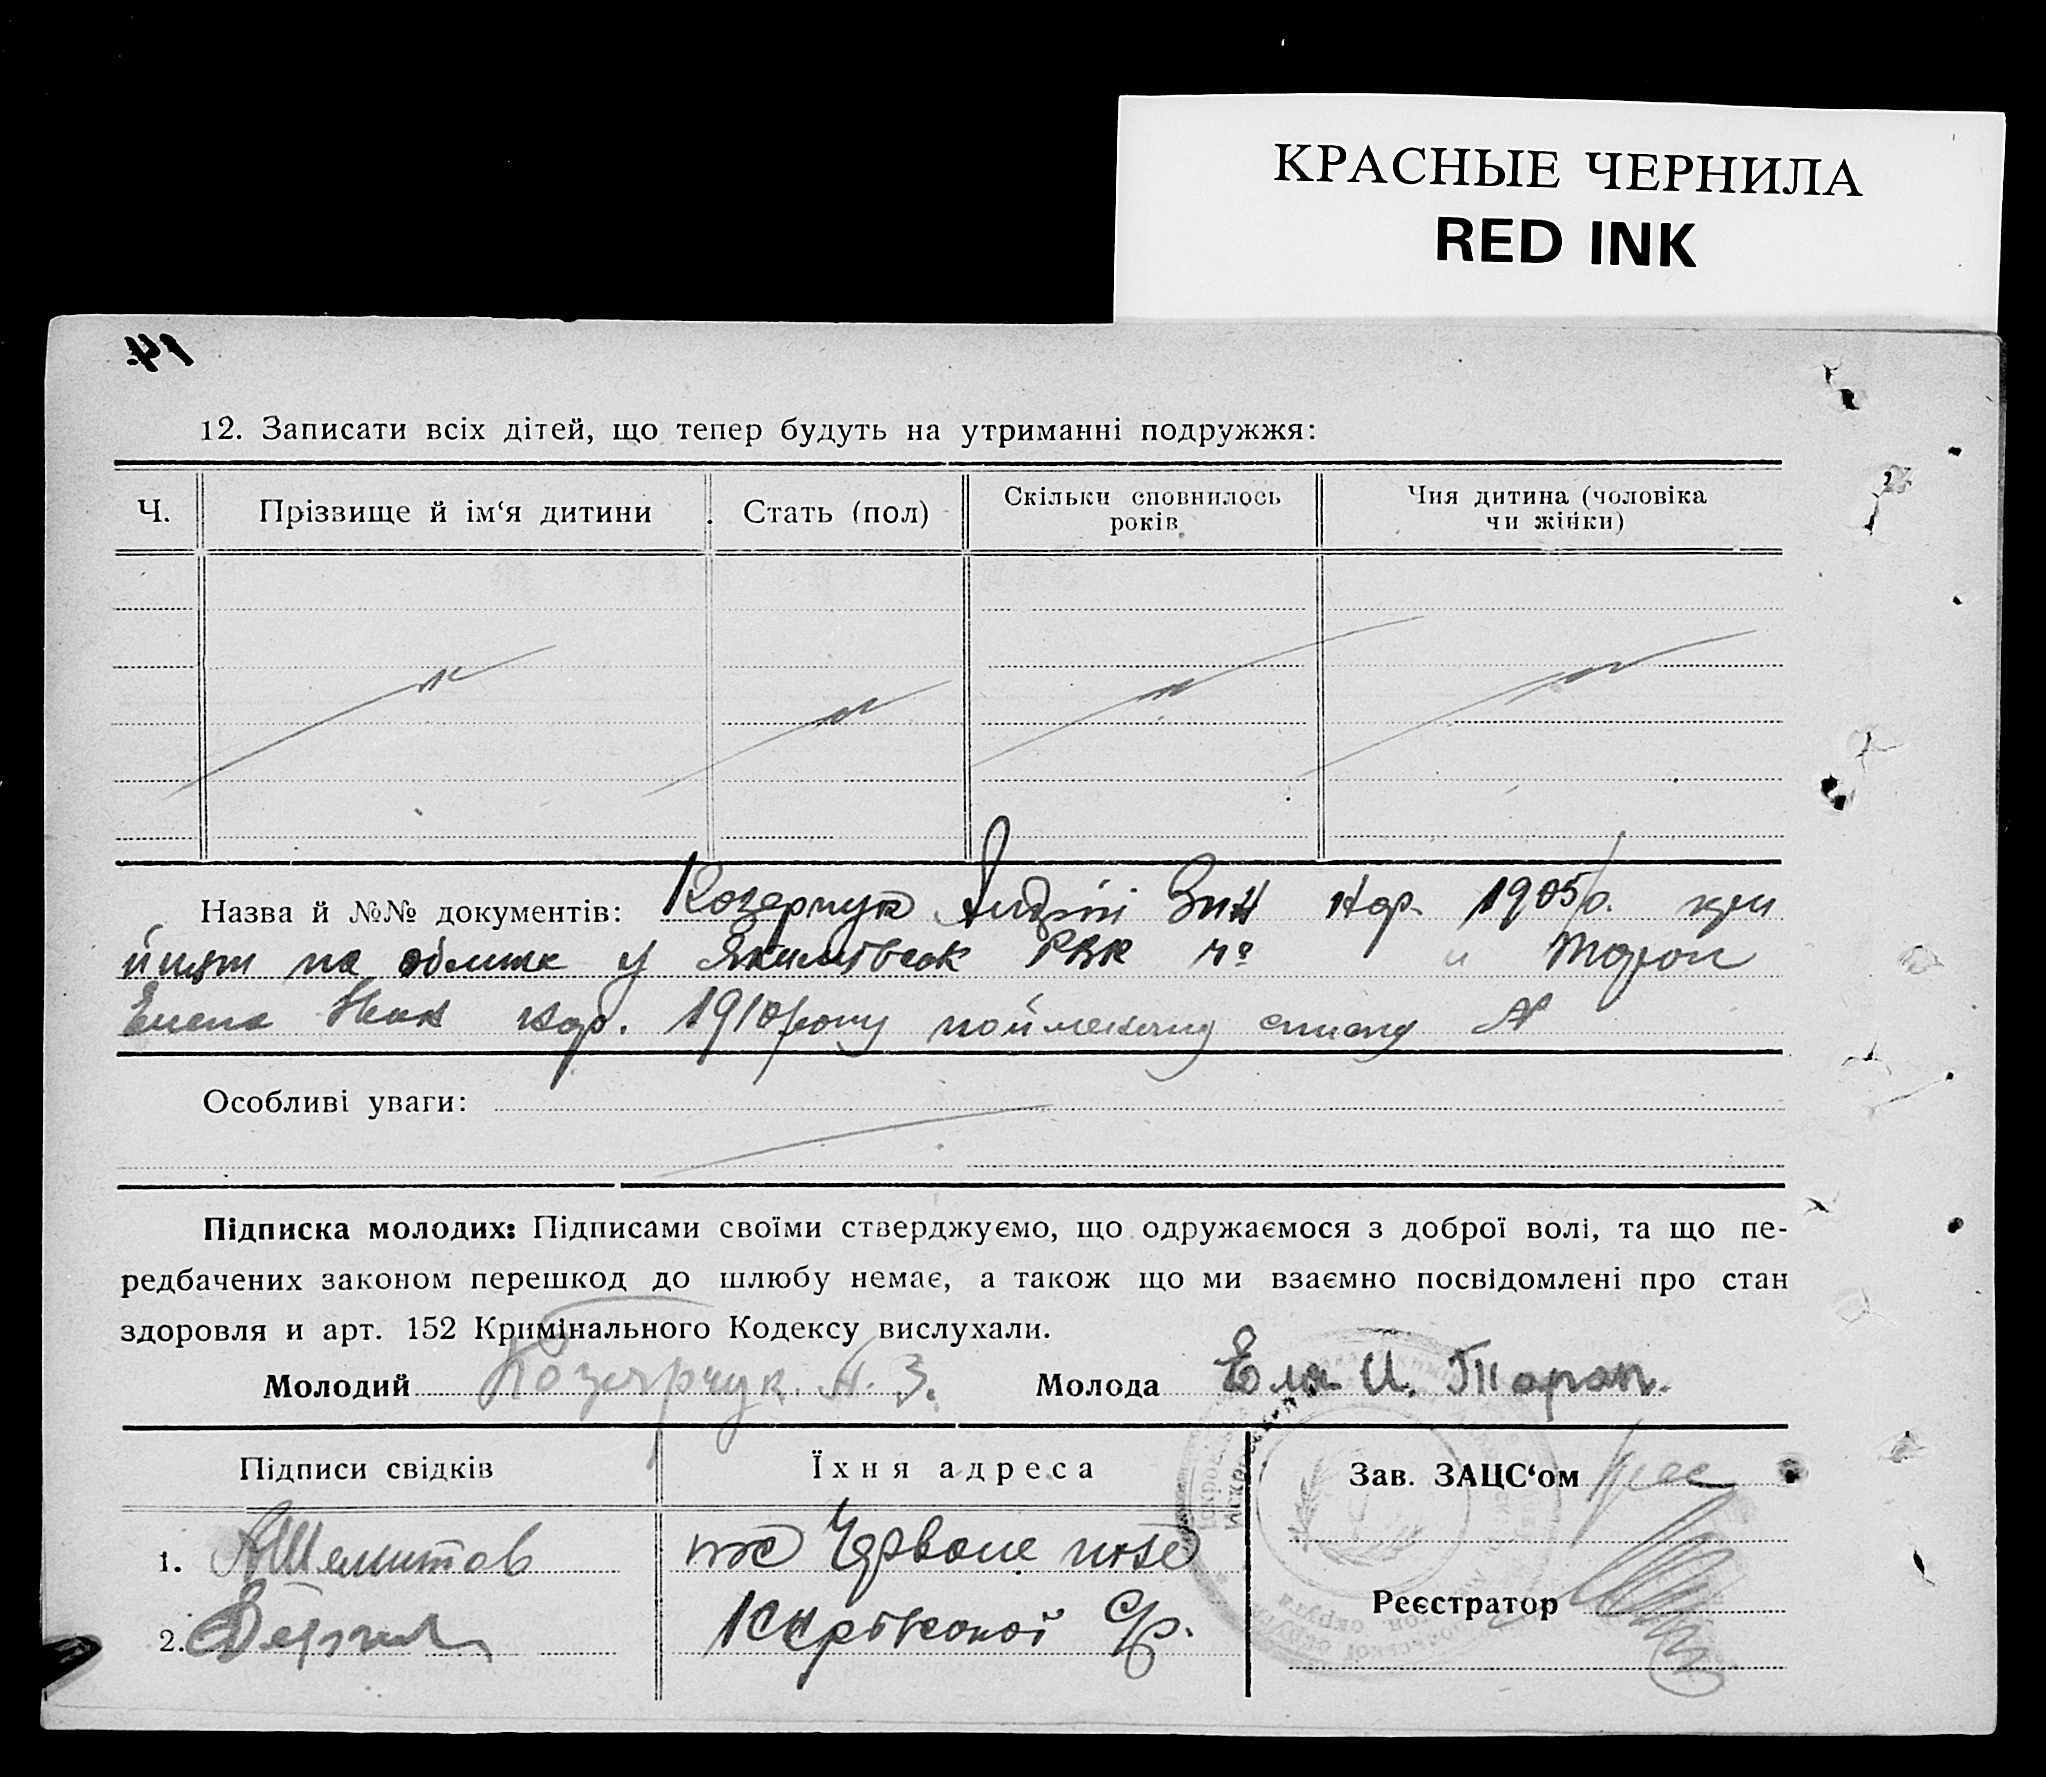 КРАСНЫЕ ЧЕРНИЛА
RED INK
14
12. Записати всіх дітей, що тепер будуть на утриманні подружжя:
Ч. Прізвище й ім‘я дитини Стать (пол) Скільки сповнилось років Чия дитина (чоловіка чи жінки)
Назва й №№ документів: Козярчук Андрій Зин нар. 1905 р.
на обліке у РВК № и Таран
Елена нар. 1910 року списку №
Особливі уваги:
Підписка молодих: Підписами своїми стверджуємо, що одружаємося з доброї волі, та що пе-
редбачених законом перешкод до шлюбу немає, а також що ми взаємно посвідомлені про стан
здоровля и арт. 152 Кримінального Кодексу вислухали.
Молодий Козярчук А. З. Молода Еля И. Таран.
Підписи свідків Їхня адреса Зав. ЗАЦС‘ом
1. Червоне поле
2. Кирівської С/р. Реєстратор